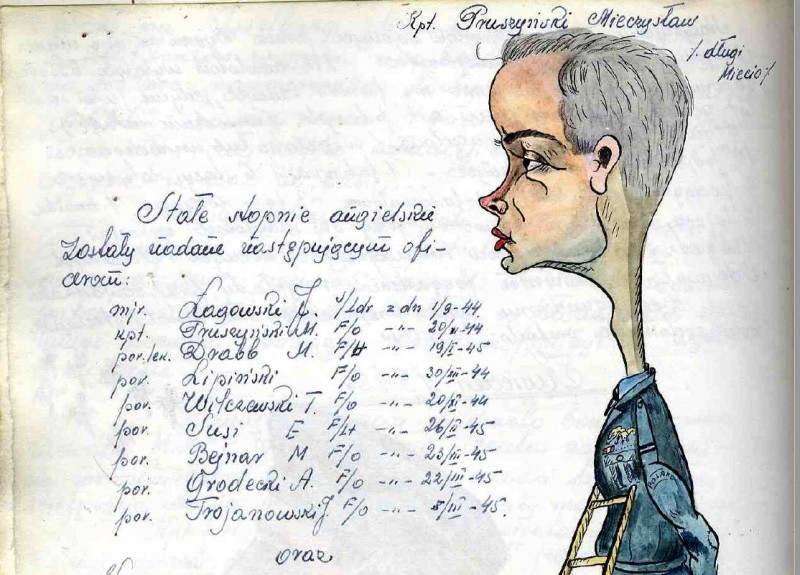 Kpt. Pruszyński Mieczysław
/. długi
Miecio/
Stałe stopnie angielskie
zostały nadane następującym ofi-
cerom:
mjr. Łagowski J. S/Ldr z dn 1/9-44.
kpt. Pruszyński M. F/o -"- 20/XI-44
por. lek. Drabb M. F/Lt -"- 19/I-45
por. Lipiński F/o -"- 30/XII-44
por. Wilczewski T. F/o -"- 20/XI-44
por. Susi E F/Lt -"- 26/II-45
por. Bejnar M. F/o -"- 23/III-45
por. Grodecki A. F/o -"- 22/III-45
por. Trojanowski J. F/o -"- 8/III-45.
oraz
POLAND